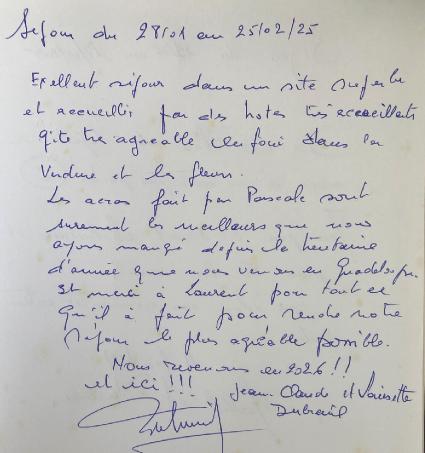 Séjour du 28/01 au 25/02/25
Exellent séjour dans un site superbe
et accueilli par des hotes très accueillants
gite très agréable enfoui dans la
Verdure et les fleurs.
Les acras fait par Pascale sont
surement les meilleurs que nous
ayons mangé depuis la trentaine
d'année que nous venons en Guadeloupe.
et merci à Laurent pour tout ce
qu'il à fait pour rendre notre
séjour le plus agréable possible.
Nous revenons en 2026 !!
et ici !!!
Jean-Claude et Louisette
Dubreuil